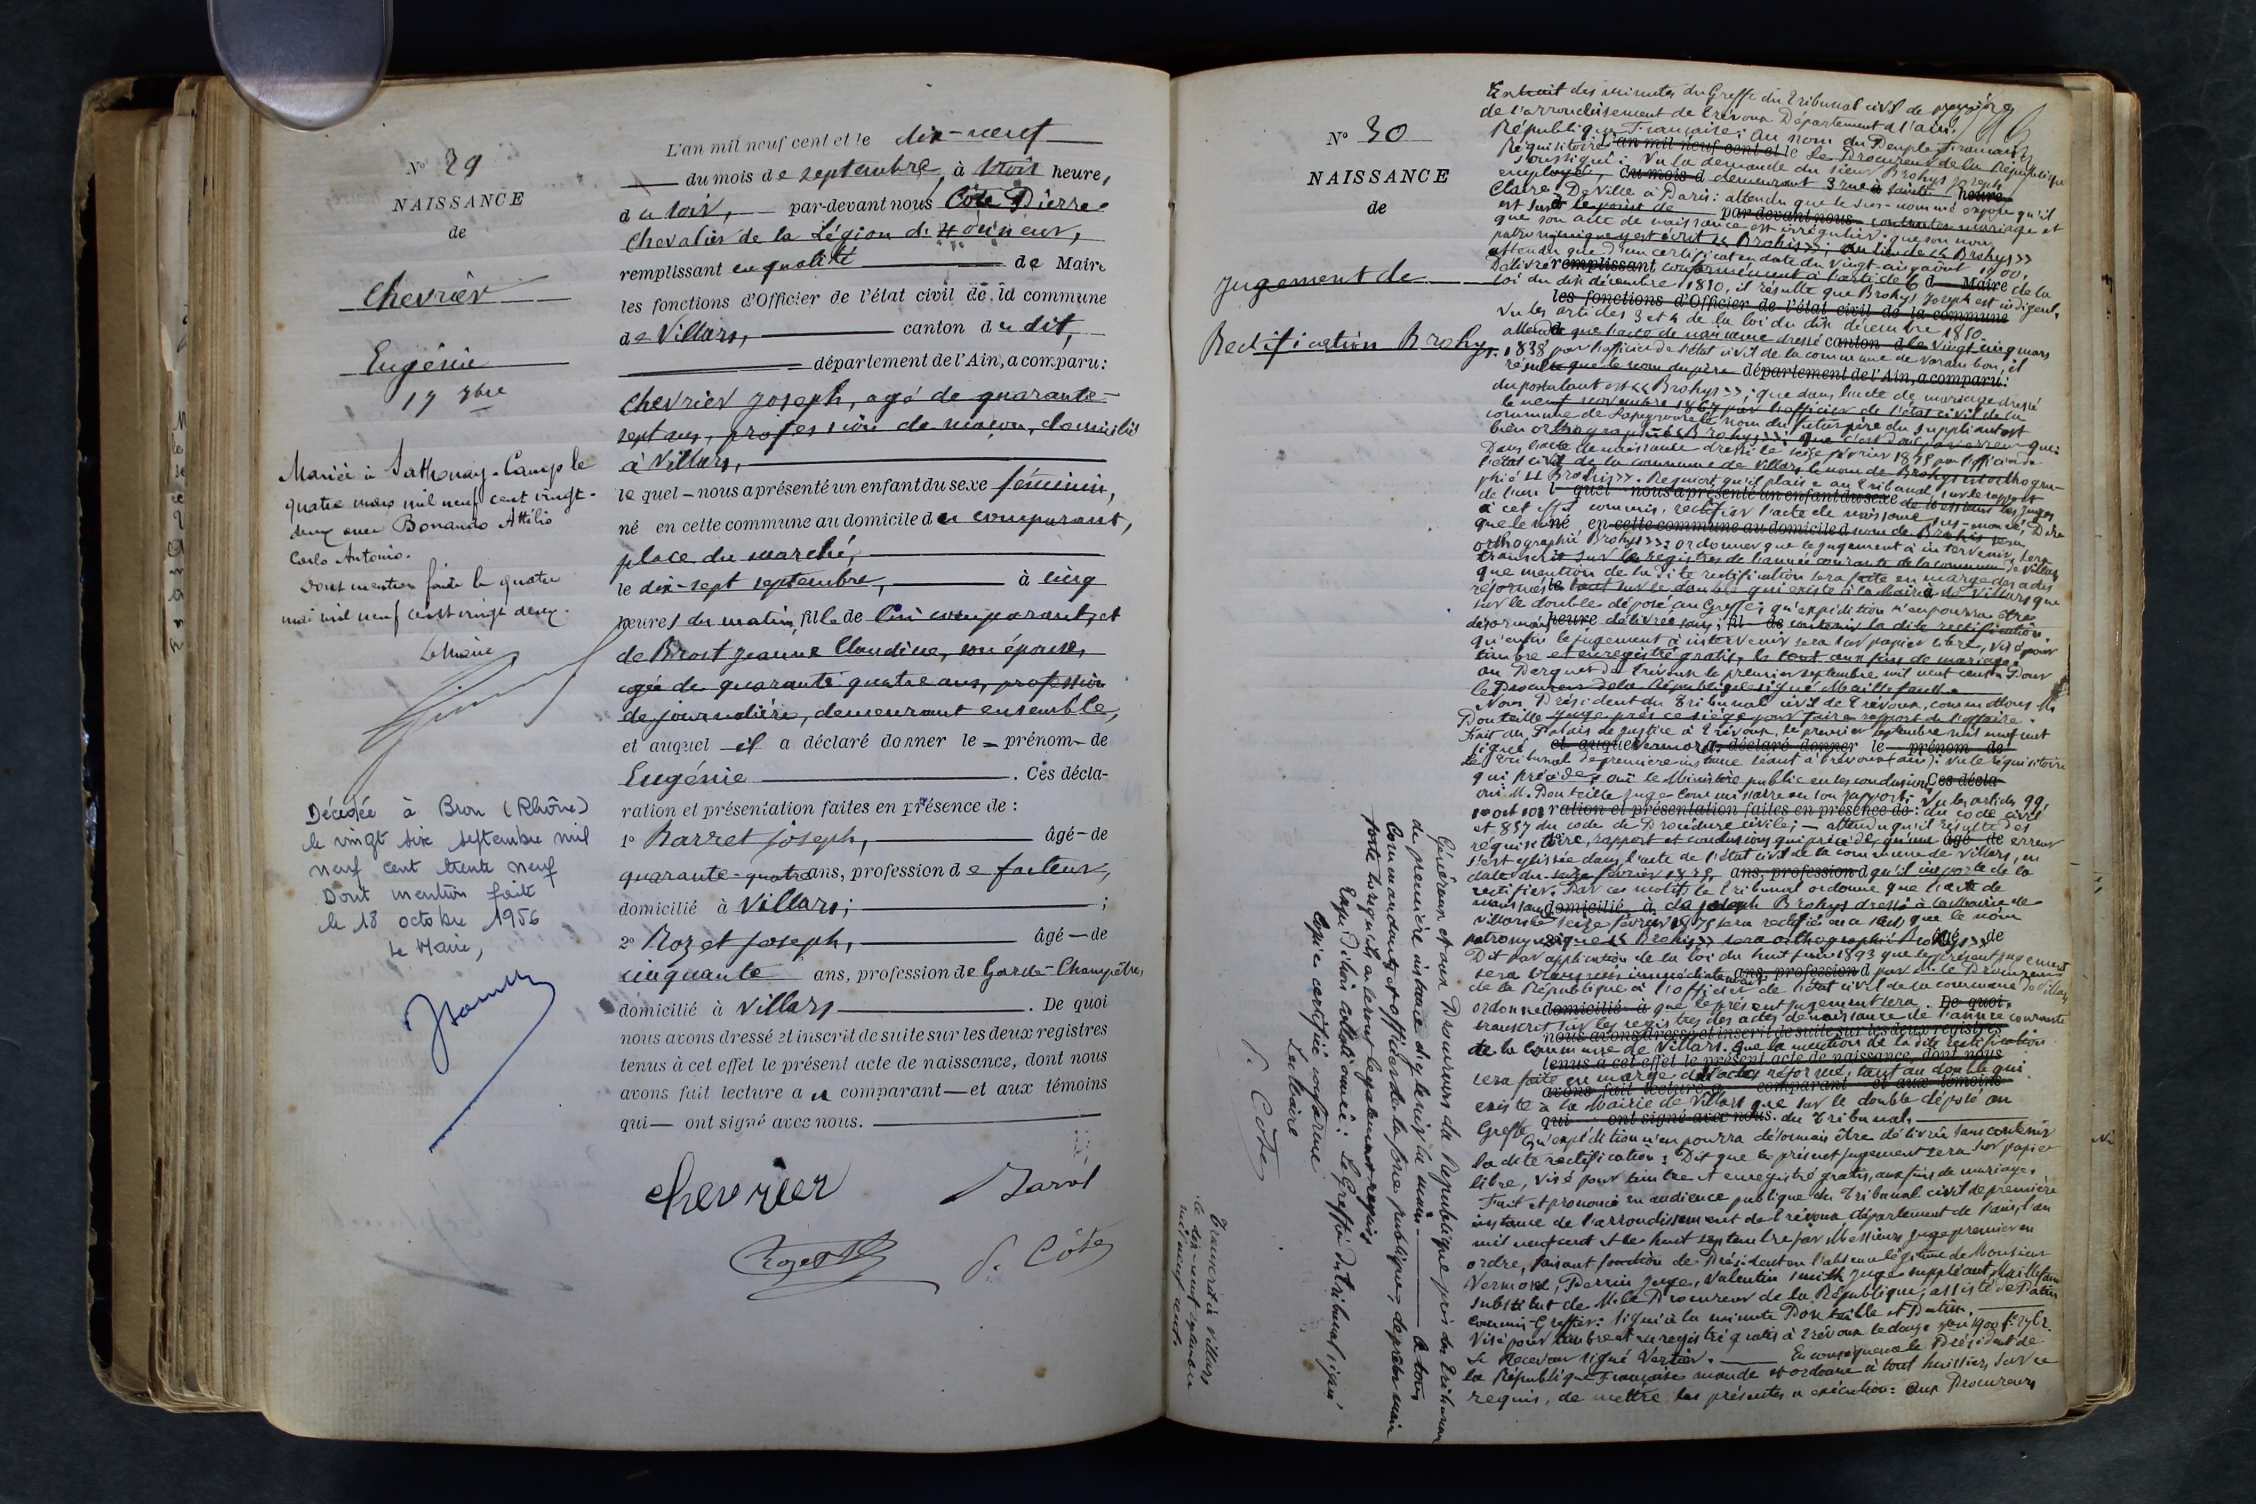 N° 29
NAISSANCE
de
Chevrier
Eugénie
17 7bre
Mariée à Sathonay-Camp le
quatre mars mil neuf cent vingt-
deux avec Bonando Attilio
Carlo Antonio.
Dont mention faite le quatre
mai mil neuf cent vingt deux.
Le Maire
Décédée à Bron (Rhône)
le vingt six septembre mil
neuf cent trente neuf
Dont mention faite
le 18 octobre 1956
Le Maire,
L'an mil neuf cent et le dix-neuf
du mois de septembre, à trois heures
du soir, par-devant nous Côte Pierre
Chevalier de la Légion d'Honneur,
remplissant en qualité de Maire
les fonctions d'Officier de l'état civil de la commune
de Villars, canton du dit,
département de l'Ain, a comparu:
Chevrier Joseph, agé de quarante-
sept ans, profession de maçon, domicilié
à Villars,
lequel nous a présenté un enfant du sexe féminin,
né en cette commune au domicile du comparant,
place du marché,
le dix-sept septembre, à cinq
heures du matin, fille de lui comparant, et
de Brost Jeanne Claudine, son épouse,
agée de quarante quatre ans, profession
de journalière, demeurant ensemble,
et auquel il a déclaré donner le prénom de
Eugénie. Ces décla-
ration et présentation faites en présence de :
1° Barret Joseph, âgé de
quarante-quatre ans, profession de facteur,
domicilié à Villars; ;
2° Rozet Joseph, âgé de
cinquante ans, profession de Garde-Champêtre,
domicilié à Villars. De quoi
nous avons dressé et inscrit de suite sur les deux registres
tenus à cet effet le présent acte de naissance, dont nous
avons fait lecture au comparant et aux témoins
qui ont signé avec nous.
Chevrier Barret
Rozet P. Côte
N° 30
NAISSANCE
de
Jugement de
Rectification Brohys.
Extrait des minutes du Greffe du Tribunal civil de première
de l'arrondissement de Trévoux Département de l'ain.
République Française; Au nom du Peuple Français
Réquisitoire L'an mil neuf cent et le Le Procureur de la République
soussigné: Vu la demande du sieur Brohys Joseph
employé, du mois d demeurant 3 rue à Sainte heure
Claire Deville à Paris: attendu que le sus-nommé expose qu'il
est sur le point de par-devant nous contracter mariage et
que son acte de naissance est irrégulier: que son nom
patronymique y est écrit << Brohis>>, au lieu de << Brohys>>
attendu que d'un certificat en date du vingt-cinq août 1900,
Délivré remplissant conformément à l'article 6 d Maire de la
loi du dix décembre 1850, il résulte que Brohys Joseph est indigent.
les fonctions d'Officier de l'état civil de la commune
Vu les articles 3 et 4 de la loi du dix décembre 1850.
attendu que l'acte de naissance dressé canton d le vingt cinq mars
1838 par l'officier de l'état civil de la commune de Varambon, il
résulte que le nom du père département de l'Ain, a comparu:
du postulant est << Brohys>>; que dans l'acte de mariage dressé
le neuf novembre 1867 par l'officier de l'état civil de la
commune de Lapeyrouse le nom du futur père du suppliant est
bien orthographié << Brohys>>; que c'est donc par erreur que
Dans l'acte de naissance dressé le seize février 1875 par l'officier de
l'état civil de la commune de Villars le nom de Brohys est orthogra-
phié << Brohis>>. Requiert qu'il plaise au Tribunal, sur le rapport
de l'un l quel nous a présenté un enfant du sexe de Messieurs les juges
à cet effet commis, rectifier l'acte de naissance sus-énoncé; Dire
que le né en cette commune au domicile d nom de Brohis sera
orthographié Brohys>>; ordonner que le jugement à intervenir sera
transcrit sur les registres de l'année courante de la commune de Villars
que mention de la dite rectification sera faite en marge des actes
réformés le tout sur le double qui existe à la Mairie de Villars que
sur le double déposé au Greffe; qu'expédition n'en pourra être
désormais heure délivrée sans; fil de contenir la dite rectification.
qu'enfin le jugement à intervenir sera sur papier libre, visé pour
timbre et enregistré gratis, le tout aux fins de mariage.
au Parquet de Trévoux le premier septembre mil neuf cent. Pour
le Procureur de la République signé Maillefaud.
Nous, Président du Tribunal civil de Trévoux, commettons M.
Douteille juge près ce siège pour faire rapport de l'affaire.
Fait au Palais de justice à Trévoux, le premier septembre mil neuf cent
signé et auquel Vermorel a déclaré donner le prénom de
Le Tribunal de première instance séant à Trévoux (ain): Vu le réquisitoire
qui précède; ouï le Ministère public en ses conclusions, Ces décla-
ouï M. Douteille juge commissaire en son rapport; Vu les articles 99,
100 et 101 ration et présentation faites en présence de : du code civil
et 857 du code de Procédure civile; — attendu qu'il résulte des
réquisitoire, rapport et conclusions qui précède, qu'une âgé de erreur
s'est glissée dans l'acte de l'état civil de la commune de Villars, en
date du seize février 1875, ans, profession d qu'il importe de la
rectifier. Par ces motifs le Tribunal ordonne que l'acte de
naissance domicilié à de Joseph Brohys dressé à la Mairie de
Villars le seize février 1875 sera rectifié en ce sens, que le nom
patronymique << Brohis>> sera orthographié Brohys>> âgé de
Dit par application de la loi du huit juin 1893 que le présent jugement
sera transmis immédiatement ans, profession d par M. le Procureur
de la République à l'officier de l'état civil de la commune de Villars
ordonne domicilié à que le présent jugement sera. De quoi
transcrit sur les registres des actes de naissance de l'année courante
nous avons dressé et inscrit de suite sur les deux registres
de la commune de Villars. Que la mention de la dite rectification
tenus à cet effet le présent acte de naissance, dont nous
sera faite en marge de l'acte réformé, tant au double qui
avons fait lecture a comparant et aux témoins
existe à la Mairie de Villars que sur le double déposé au
Greffe qui ont signé avec nous. du Tribunal.
Qu'expédition n'en pourra désormais être délivrée sans contenir
la dite rectification: Dit que le présent jugement sera sur papier
libre, visé pour timbre et enregistré gratis, aux fins de mariage.
Fait et prononcé en audience publique du Tribunal civil de première
instance de l'arrondissement de Trévoux département de l'ain, l'an
mil neuf cent et le huit septembre par Messieurs juge premier en
ordre, faisant fonction de Président en l'absence légitime de Monsieur
Vermorel, Perrin juge, Valentin Smith juge suppléant, Maillefaud
substitut de M. le Procureur de la République, assisté de
commis-Greffier: Signé à la minute Douteille et
Visé pour timbre et enregistré gratis à Trévoux le douze 1900
Le Receveur signé Vertier. En conséquence le Président de
la République Française mande et ordonne à tout huissier, sur ce
requis, de mettre les présentes à exécution: aux Procureurs
Généraux et aux Procureurs de la République près les Tribunaux
de première instance d'y tenir la main à tous
Commandants et officiers de la force publique, de prêter main
forte lorsqu'ils en seront légalement requis
Expédition collationnée: Le Greffier du Tribunal signé
Copie certifiée conforme
Le Maire
P. Côte
Transcrit à Villars
le dix-neuf septembre
mil neuf cent.